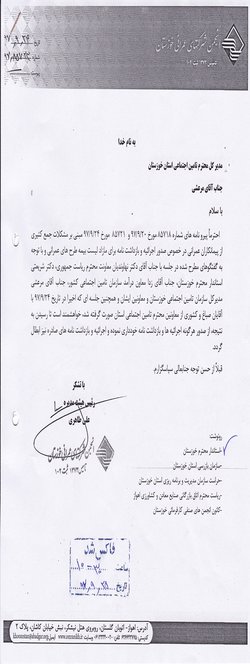 انجمن شرکتهای عمرانی خوزستان
تاریخ
شماره
پیوست
به نام خدا
مدیر کل محترم تامین اجتماعی استان خوزستان
جناب آقای مرعشی
با سلام
احتراماً پیرو نامه های شماره ۸۵۷۱۸ مورخ ۹۷/۹/۲۰ و ۸۵۷۲۱ مورخ ۹۷/۹/۲۴ مبنی بر مشکلات جمع کثیری
از پیمانکاران عمرانی در خصوص صدور اجرائیه و بازداشت نامه برای مازاد لیست بیمه طرح های عمرانی و با توجه
به گفتگوهای مطرح شده در جلسه با جناب آقای دکتر نهاوندیان معاونت محترم ریاست جمهوری، دکتر شریعتی
استاندار محترم خوزستان، جناب آقای زدا معاون درآمد سازمان تامین اجتماعی کشور، جناب آقای مرعشی
مدیرکل سازمان تامین اجتماعی خوزستان و معاونین ایشان و همچنین جلسه ای که اخیرا در تاریخ ۹۷/۹/۲۴ با
آقایان صباغ و کثیری از معاونین محترم تامین اجتماعی استان صورت گرفته شد، خواهشمند است تا رسیدن به
نتیجه از صدور هرگونه اجرائیه ها و بازداشت نامه خودداری نموده و اجرائیه و بازداشت نامه های صادره نیز ابطال
گردد.
قبلاً از حسن توجه جنابعالی سپاسگزارم.
با تشکر
رئیس هیئت مدیره
علی طاهری
رونوشت:
-استاندار محترم خوزستان
-سازمان بازرسی استان خوزستان
-حراست سازمان مدیریت و برنامه ریزی استان خوزستان
-ریاست محترم اتاق بازرگانی صنایع معادن و کشاورزی اهواز
-کانون انجمن های صنفی کارفرمائی خوزستان
فاکس شد
ساعت
تاریخ
آدرس: اهواز- اتوبان گلستان، روبروی هتل نیشکر، نبش خیابان کاشان، پلاک ۲